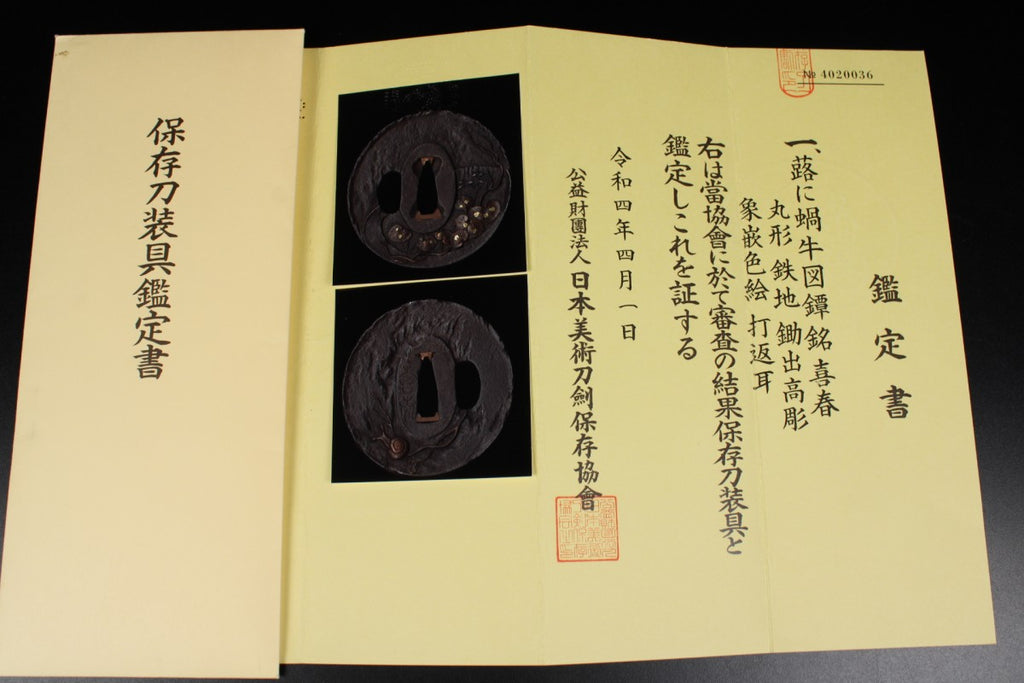 保存刀装具鑑定書
№ 4020036
鑑定書
一、蕗に蝸牛図鐔 銘 喜春
丸形 鉄地 鋤出高彫
象嵌色絵 打返耳
右は當協會に於て審査の結果保存刀装具と
鑑定しこれを証する
令和四年四月一日
公益財團法人 日本美術刀劍保存協會